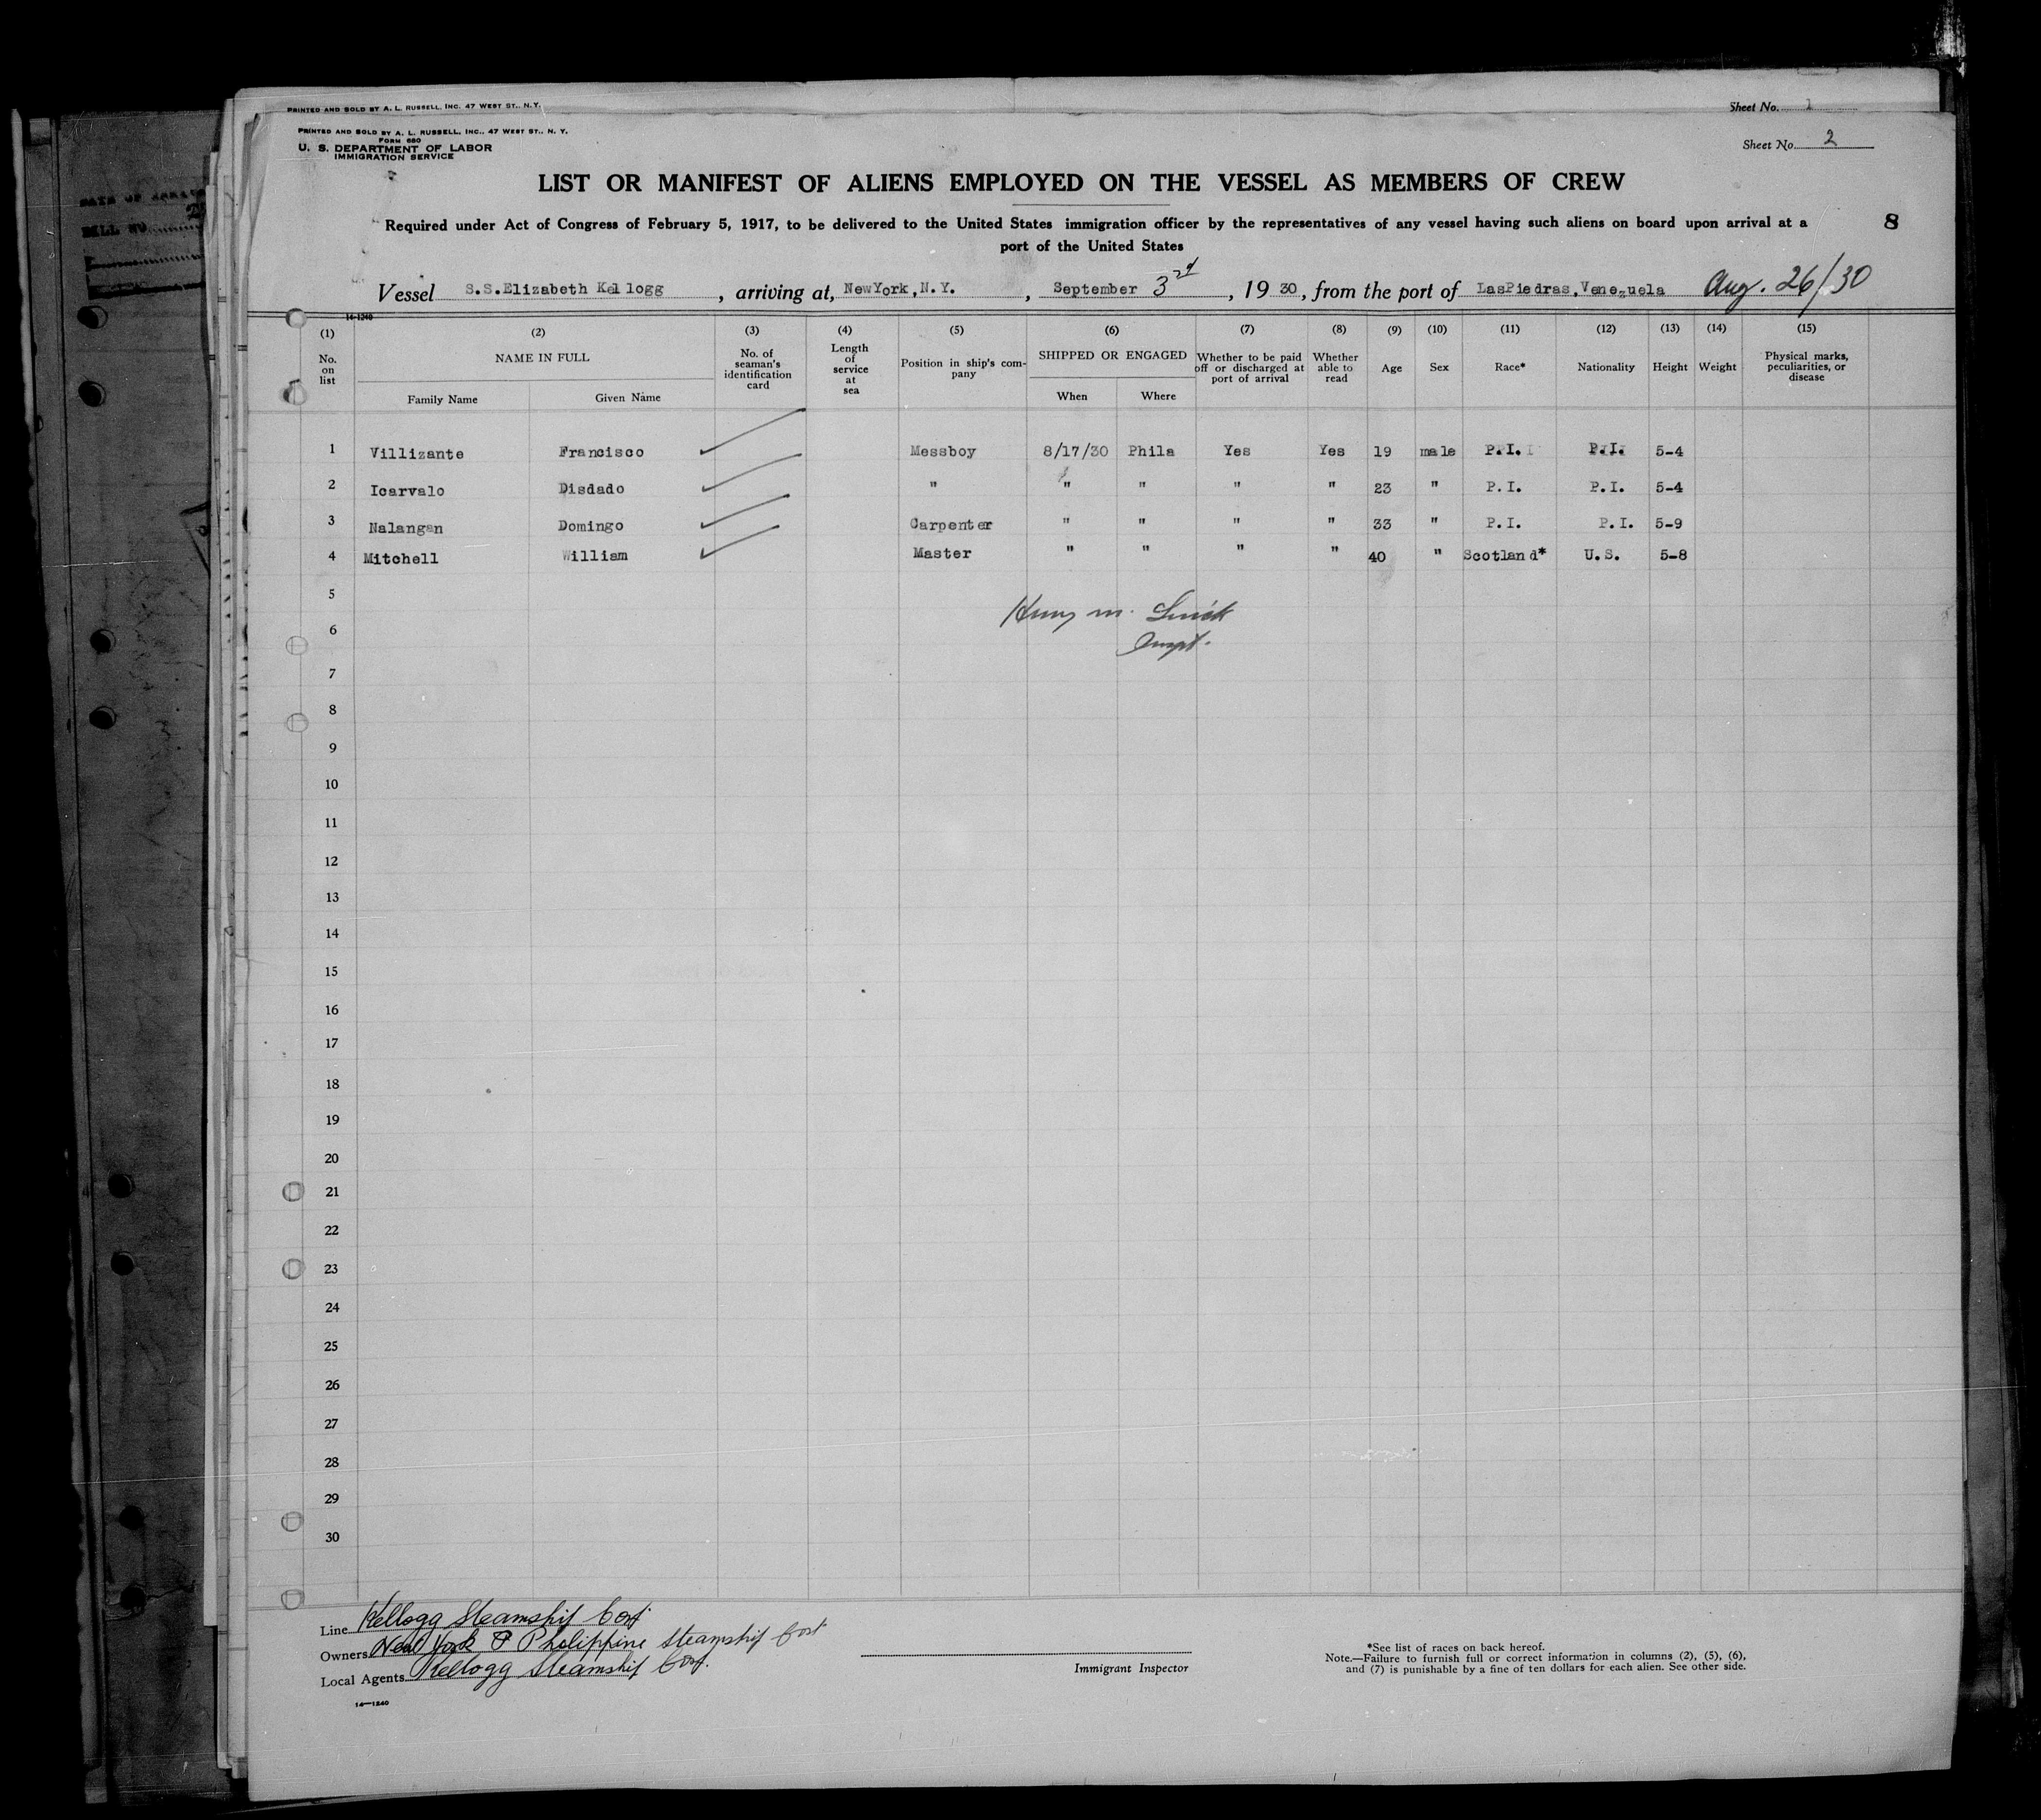 PRINTED AND SOLD BY A. L. RUSSELL, INC. 47 WEST ST., N.Y.
Sheet No. 1
PRINTED AND SOLD BY A. L. RUSSELL, INC., 47 WEST ST., N. Y.
FORM 680
U. S. DEPARTMENT OF LABOR
IMMIGRATION SERVICE
Sheet No. 2
LIST OR MANIFEST OF ALIENS EMPLOYED ON THE VESSEL AS MEMBERS OF CREW
Required under Act of Congress of February 5, 1917, to be delivered to the United States immigration officer by the representatives of any vessel having such aliens on board upon arrival at a
port of the United States
8
Vessel S.S.Elizabeth Kellogg, arriving at, NewYork,N.Y., September 3rd, 19 30, from the port of LasPiedras,Venezuela Aug. 26/30
14-1240
(1) (2) (3) (4) (5) (6) (7) (8) (9) (10) (11) (12) (13) (14) (15)
No. on list
NAME IN FULL
Family Name Given Name
No. of seaman's identification card
Length of service at sea
Position in ship's company
SHIPPED OR ENGAGED
When Where
Whether to be paid off or discharged at port of arrival
Whether able to read
Age
Sex
Race*
Nationality
Height
Weight
Physical marks, peculiarities, or disease
1 Villizante Francisco Messboy 8/17/30 Phila Yes Yes 19 male P.I. P.I. 5-4
2 Icarvalo Disdado " " " " " 23 " P.I. P.I. 5-4
3 Nalangan Domingo Carpenter " " " " 33 " P.I. P.I. 5-9
4 Mitchell William Master " " " " 40 " Scotland* U.S. 5-8
5
6
7
8
9
10
11
12
13
14
15
16
17
18
19
20
21
22
23
24
25
26
27
28
29
30
Line Kellogg Steamship Corp.
Owners New York & Philippine Steamship Corp
Local Agents Kellogg Steamship Corp.
Immigrant Inspector
*See list of races on back hereof.
Note.—Failure to furnish full or correct information in columns (2), (5), (6),
and (7) is punishable by a fine of ten dollars for each alien. See other side.
14—1240